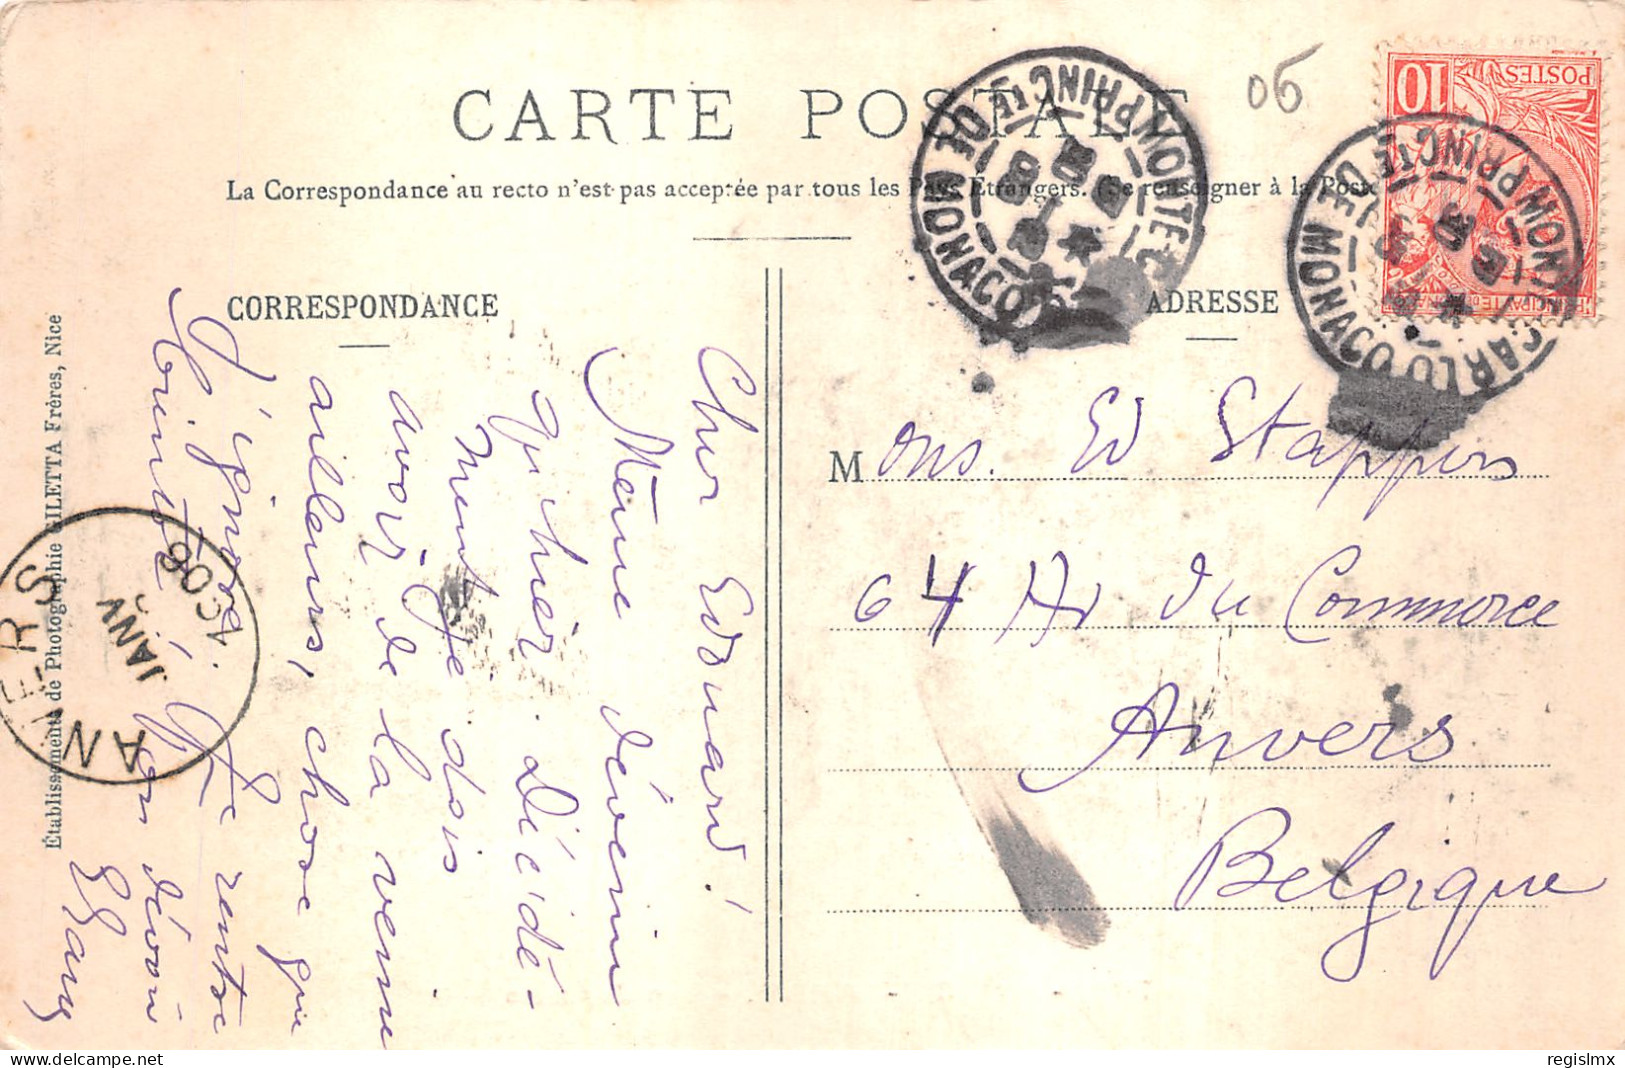 CARTE POSTALE
La Correspondance au recto n'est pas acceptée par tous les Pays Étrangers. (Se renseigner à la Poste
CORRESPONDANCE
ADRESSE
Cher Edouard!
Même dévenin
qu'hier. Décidé-
ment je dois
avoir de la veine
ailleurs, chose que
j'ignore. Je rentre
ton dévoué
M ons. Ed Stappers
64 Av du Commerce
Anvers
Belgique
Établissements de Photographie GILETTA Frères, Nice
MONTE-CARLO
PRINCTÉ DE MONACO
MONTE-CARLO
PRINCTÉ DE MONACO
POSTES
10
ANVERS
JANV
1906
06
regislmx
delcampe.net